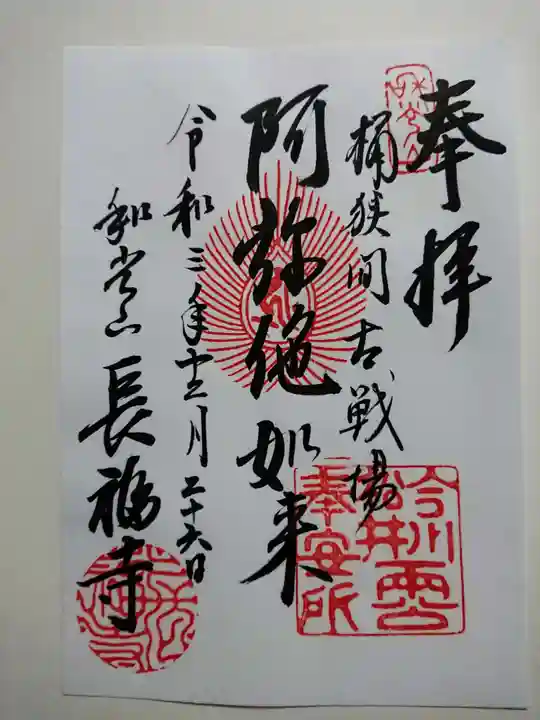 奉拝
桶狭間古戦場
今川
松井両公
奉安所
阿弥陀如来
令和三年十二月二十六日
和光山長福寺